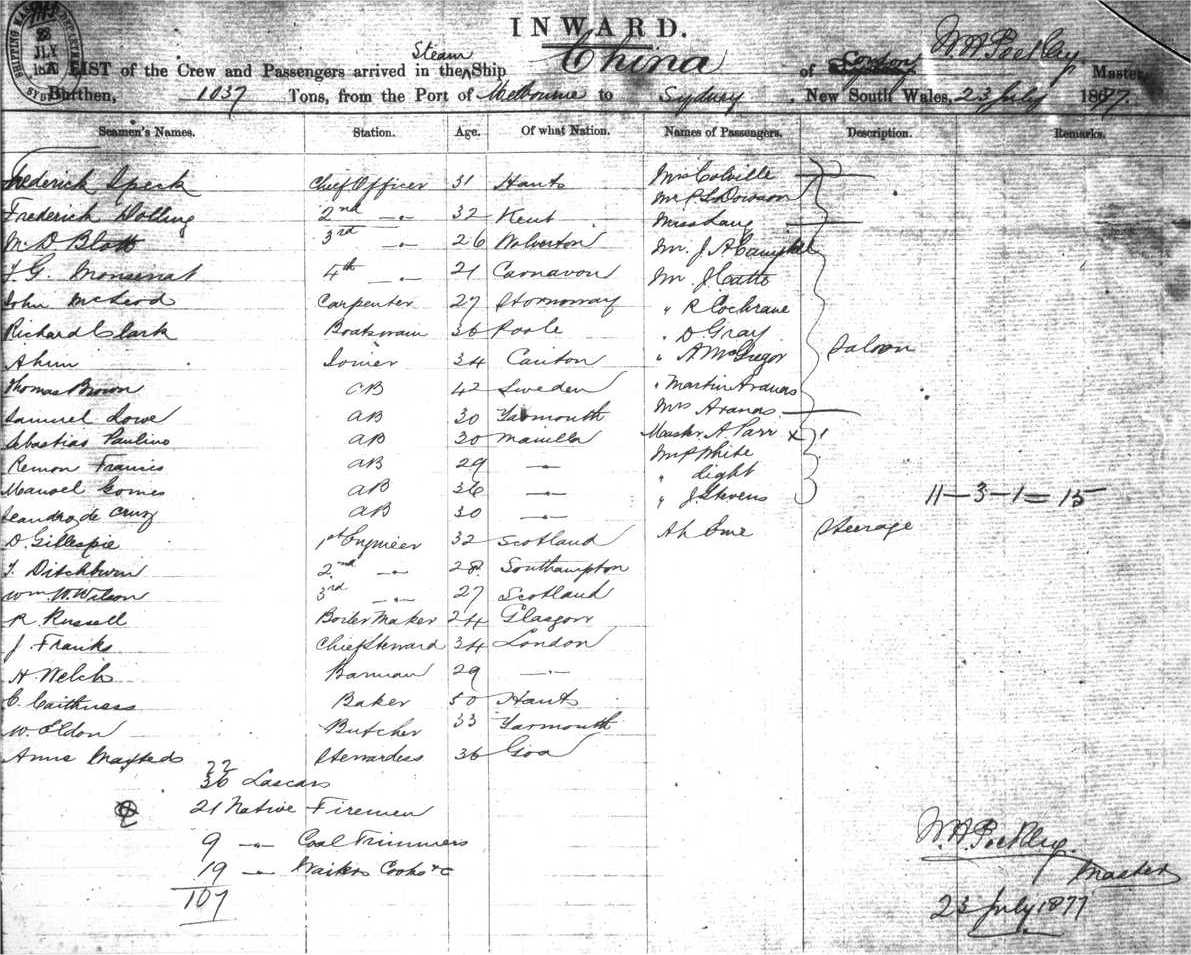 INWARD.
A LIST of the Crew and Passengers arrived in the Steam Ship China of London W. A. Pockley, Master
Burthen, 1037 Tons, from the Port of Melbourne to Sydney, New South Wales, 23 July 1877
Seamen's Names. Station. Age. Of what Nation. Names of Passengers. Description. Remarks.
Frederick Speck Chief Officer 31 Hants Mrs Colville
Mr P S Dowson
Frederick Dolling 2nd —"— 32 Kent Miss Lang
3rd —"— 26 Wolverton Mr. J A Campbell
F. G. Monserrat 4th —"— 21 Carnavon Mr J Catto
John McLeod Carpenter 27 Stornoway " R Cochrane
Richard Clark Boatswain 36 Poole " D Gray
Ahun Joiner 34 Canton " A McGregor Saloon
Thomas Brown AB 42 Sweden " Martin Aranas
Samuel Lowe AB 30 Yarmouth Mrs Aranas
Sebastias Paulino AB 30 Manilla Master A Parr x
Remon Francis AB 29 —"— Mr P White
" Light
Manoel Gomes AB 36 —"— " J Stevens 11 — 3 — 1 = 15
Leandro de Cruz AB 30 —"— Ah Steerage
D. Gillespie 1st Engineer 32 Scotland
F. Ditchburn 2nd —"— 28 Southampton
Wm. W. Wilson 3rd —"— 27 Scotland
R. Russell Boiler Maker 24 Glasgow
J Franks Chief Steward 34 London
H Welch Barman 29 —"—
C. Caithness Baker 50 Hants
W. Eldon Butcher 33 Yarmouth
Anna Stewardess 36 Goa
22
36 Lascars
21 Native Firemen
9 —"— Coal Trimmers
19 —"— Waiters Cooks &c
107
W. A. Pockley.
Master
23 July 1877